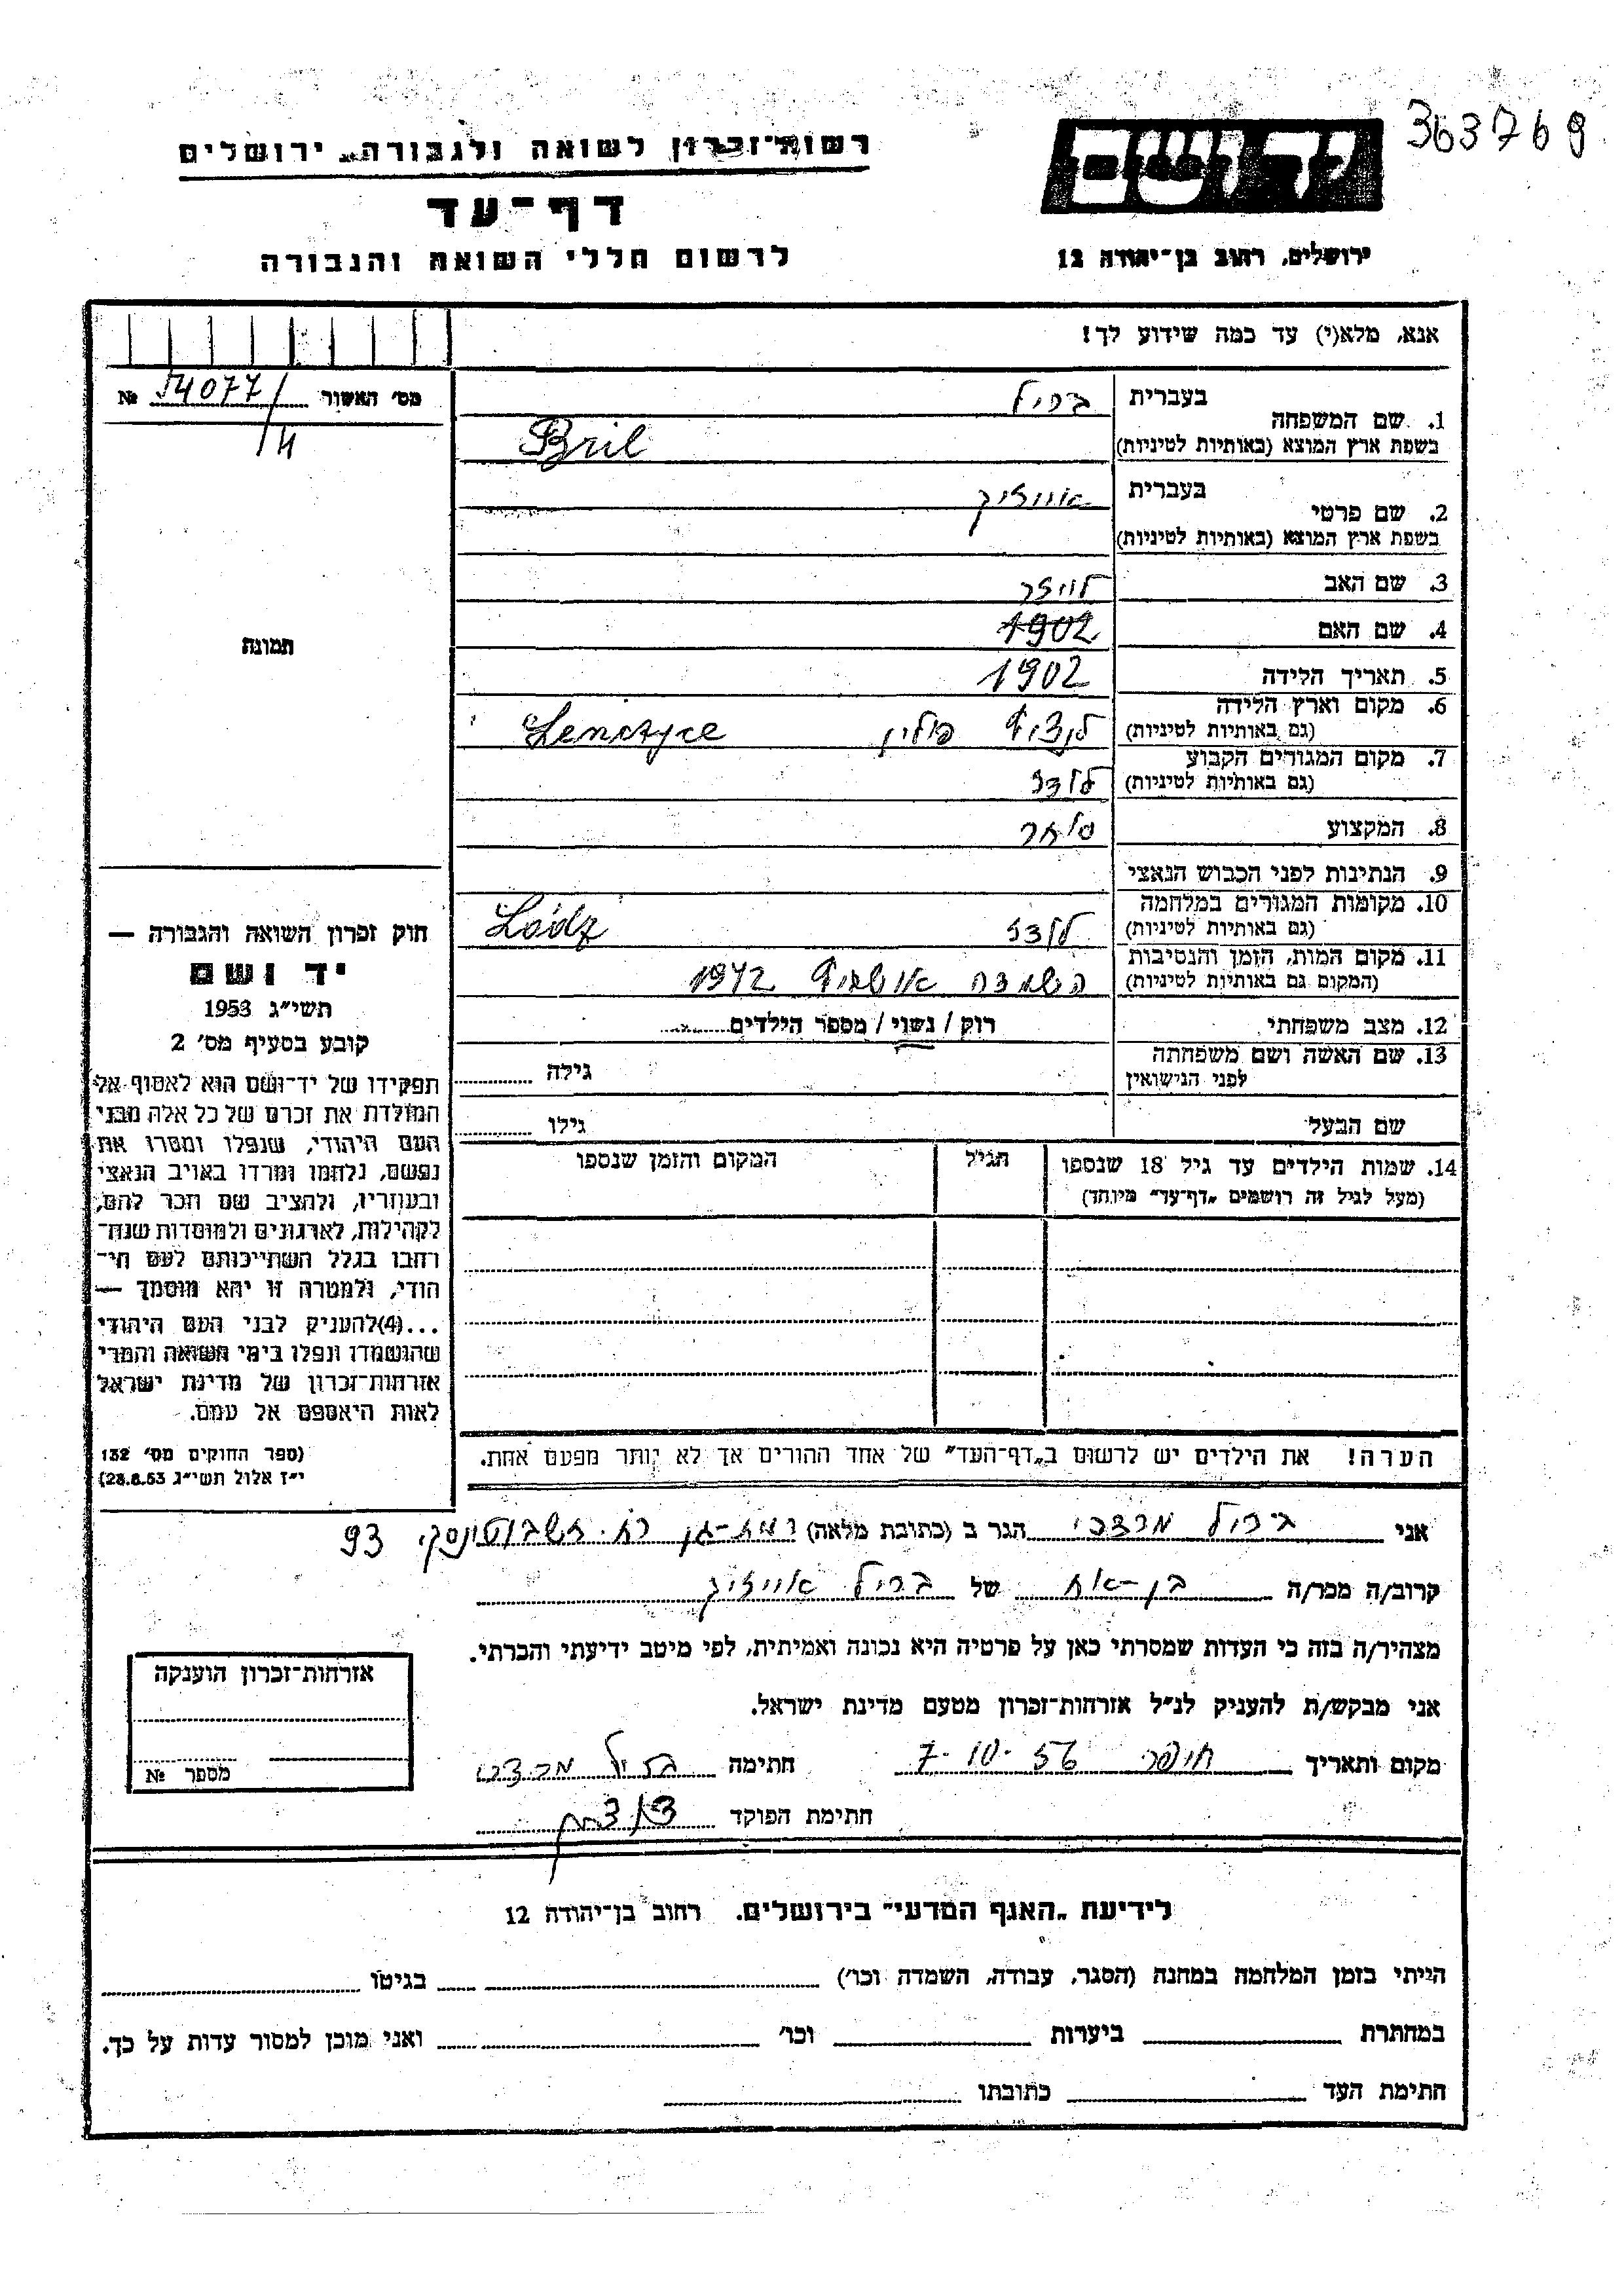 363769
רשות־זכרון לשואה ולגבורה, ירושלים
דף־עד
לרשום חללי השואה והגבורה
יד ושם
ירושלים, רחוב בן־יהודה 12
אנא, מלא(י) עד כמה שידוע לך!
מס׳ האשור 54077/4 №
תמונה
1. שם המשפחה
בעברית בריל
בשפת ארץ המוצא (באותיות לטיניות) Bril
2. שם פרטי
בעברית אייזיק
בשפת ארץ המוצא (באותיות לטיניות)
3. שם האב לייזר
4. שם האם 1902
5. תאריך הלידה 1902
6. מקום וארץ הלידה
(גם באותיות לטיניות) לנציץ פולין Lenczyce
7. מקום המגורים הקבוע
(גם באותיות לטיניות) לודז
8. המקצוע סוחר
9. הנתינות לפני הכבוש הנאצי
10. מקומות המגורים במלחמה
(גם באותיות לטיניות) לודז Lódz
11. מקום המות, הזמן והנסיבות
(המקום גם באותיות לטיניות) השמדה אושויץ 1942
12. מצב משפחתי רוק / נשוי / מספר הילדים
13. שם האשה ושם משפחתה
לפני הנישואין גילה
שם הבעל גילו
14. שמות הילדים עד גיל 18 שנספו הגיל המקום והזמן שנספו
(מעל לגיל זה רושמים „דף־עד״ מיוחד)
הערה! את הילדים יש לרשום ב„דף־העד״ של אחד ההורים אך לא יותר מפעם אחת.
חוק זכרון השואה והגבורה —
יד ושם
תשי״ג 1953
קובע בסעיף מס׳ 2
תפקידו של יד־ושם הוא לאסוף אל
המולדת את זכרם של כל אלה מבני
העם היהודי, שנפלו ומסרו את
נפשם, נלחמו ומרדו באויב הנאצי
ובעוזריו, ולהציב שם וזכר להם,
לקהילות, לארגונים ולמוסדות שנח־
רחבו בגלל השתייכותם לעם הי־
הודי, ולמטרה זו יהא מוסמך —
...(4)להעניק לבני העם היהודי
שהושמדו ונפלו בימי השואה והמרי
אזרחות־זכרון של מדינת ישראל
לאות היאספם אל עמם.
(ספר החוקים מס׳ 132
י״ז אלול תשי״ג 28.8.53)
אני בריל מרדכי הגר ב (כתובת מלאה) רמת-גן רח. זשבוטינסקי 93
קרוב/ה מכר/ה בן-אח של בריל אייזיק
מצהיר/ה בזה כי העדות שמסרתי כאן על פרטיה היא נכונה ואמיתית, לפי מיטב ידיעתי והכרתי.
אני מבקש/ת להעניק לנ״ל אזרחות־זכרון מטעם מדינת ישראל.
מקום ותאריך חיפה 7-10-56 חתימה בריל מרדכי
חתימת הפוקד
אזרחות־זכרון הוענקה
מספר №
לידיעת „האגף המדעי״ בירושלים. רחוב בן־יהודה 12
הייתי בזמן המלחמה במחנה (הסגר, עבודה, השמדה וכו׳) בגיטו
במחתרת ביערות וכו׳ ואני מוכן למסור עדות על כך.
חתימת העד כתובתו